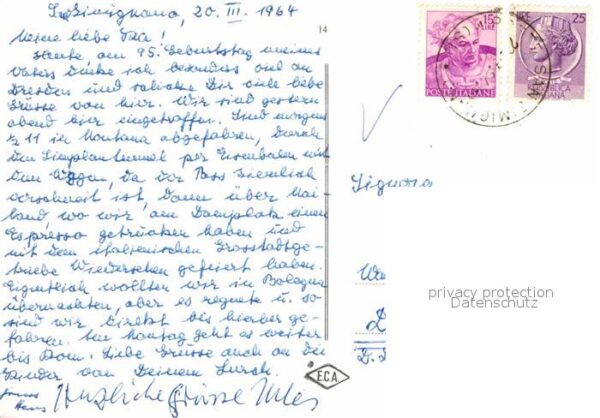 S. Gimignano, 20. III. 1964
Meine liebe Isa!
Heute am 95. Geburtstag meines
Vaters denke ich besonders viel an
Dresden und schicke Dir viele liebe
Grüsse von hier. Wir sind gestern
abend hier eingetroffen. Sind morgens
½ 11 in Montana abgefahren, durch
den Simplontunnel per Eisenbahn mit
dem Wagen, da der Pass ziemlich
verschneit ist, dann über Mai-
land wo wir am Domplatz einen
Espresso getrunken haben und
mit dem italienischen Grossstadtge-
triebe Wiedersehen gefeiert haben.
Eigentlich wollten wir in Bologna
übernachten, aber es regnete u. so
sind wir direkt bis hierher ge-
fahren. Am Montag geht es weiter
bis Rom. Liebe Grüsse auch an die
Kinder von Deinem
Hans
Herzliche Grüsse
14
E.C.A.
15
LIRE
POSTE ITALIANE
LIRE 25
Signora
privacy protection
Datenschutz